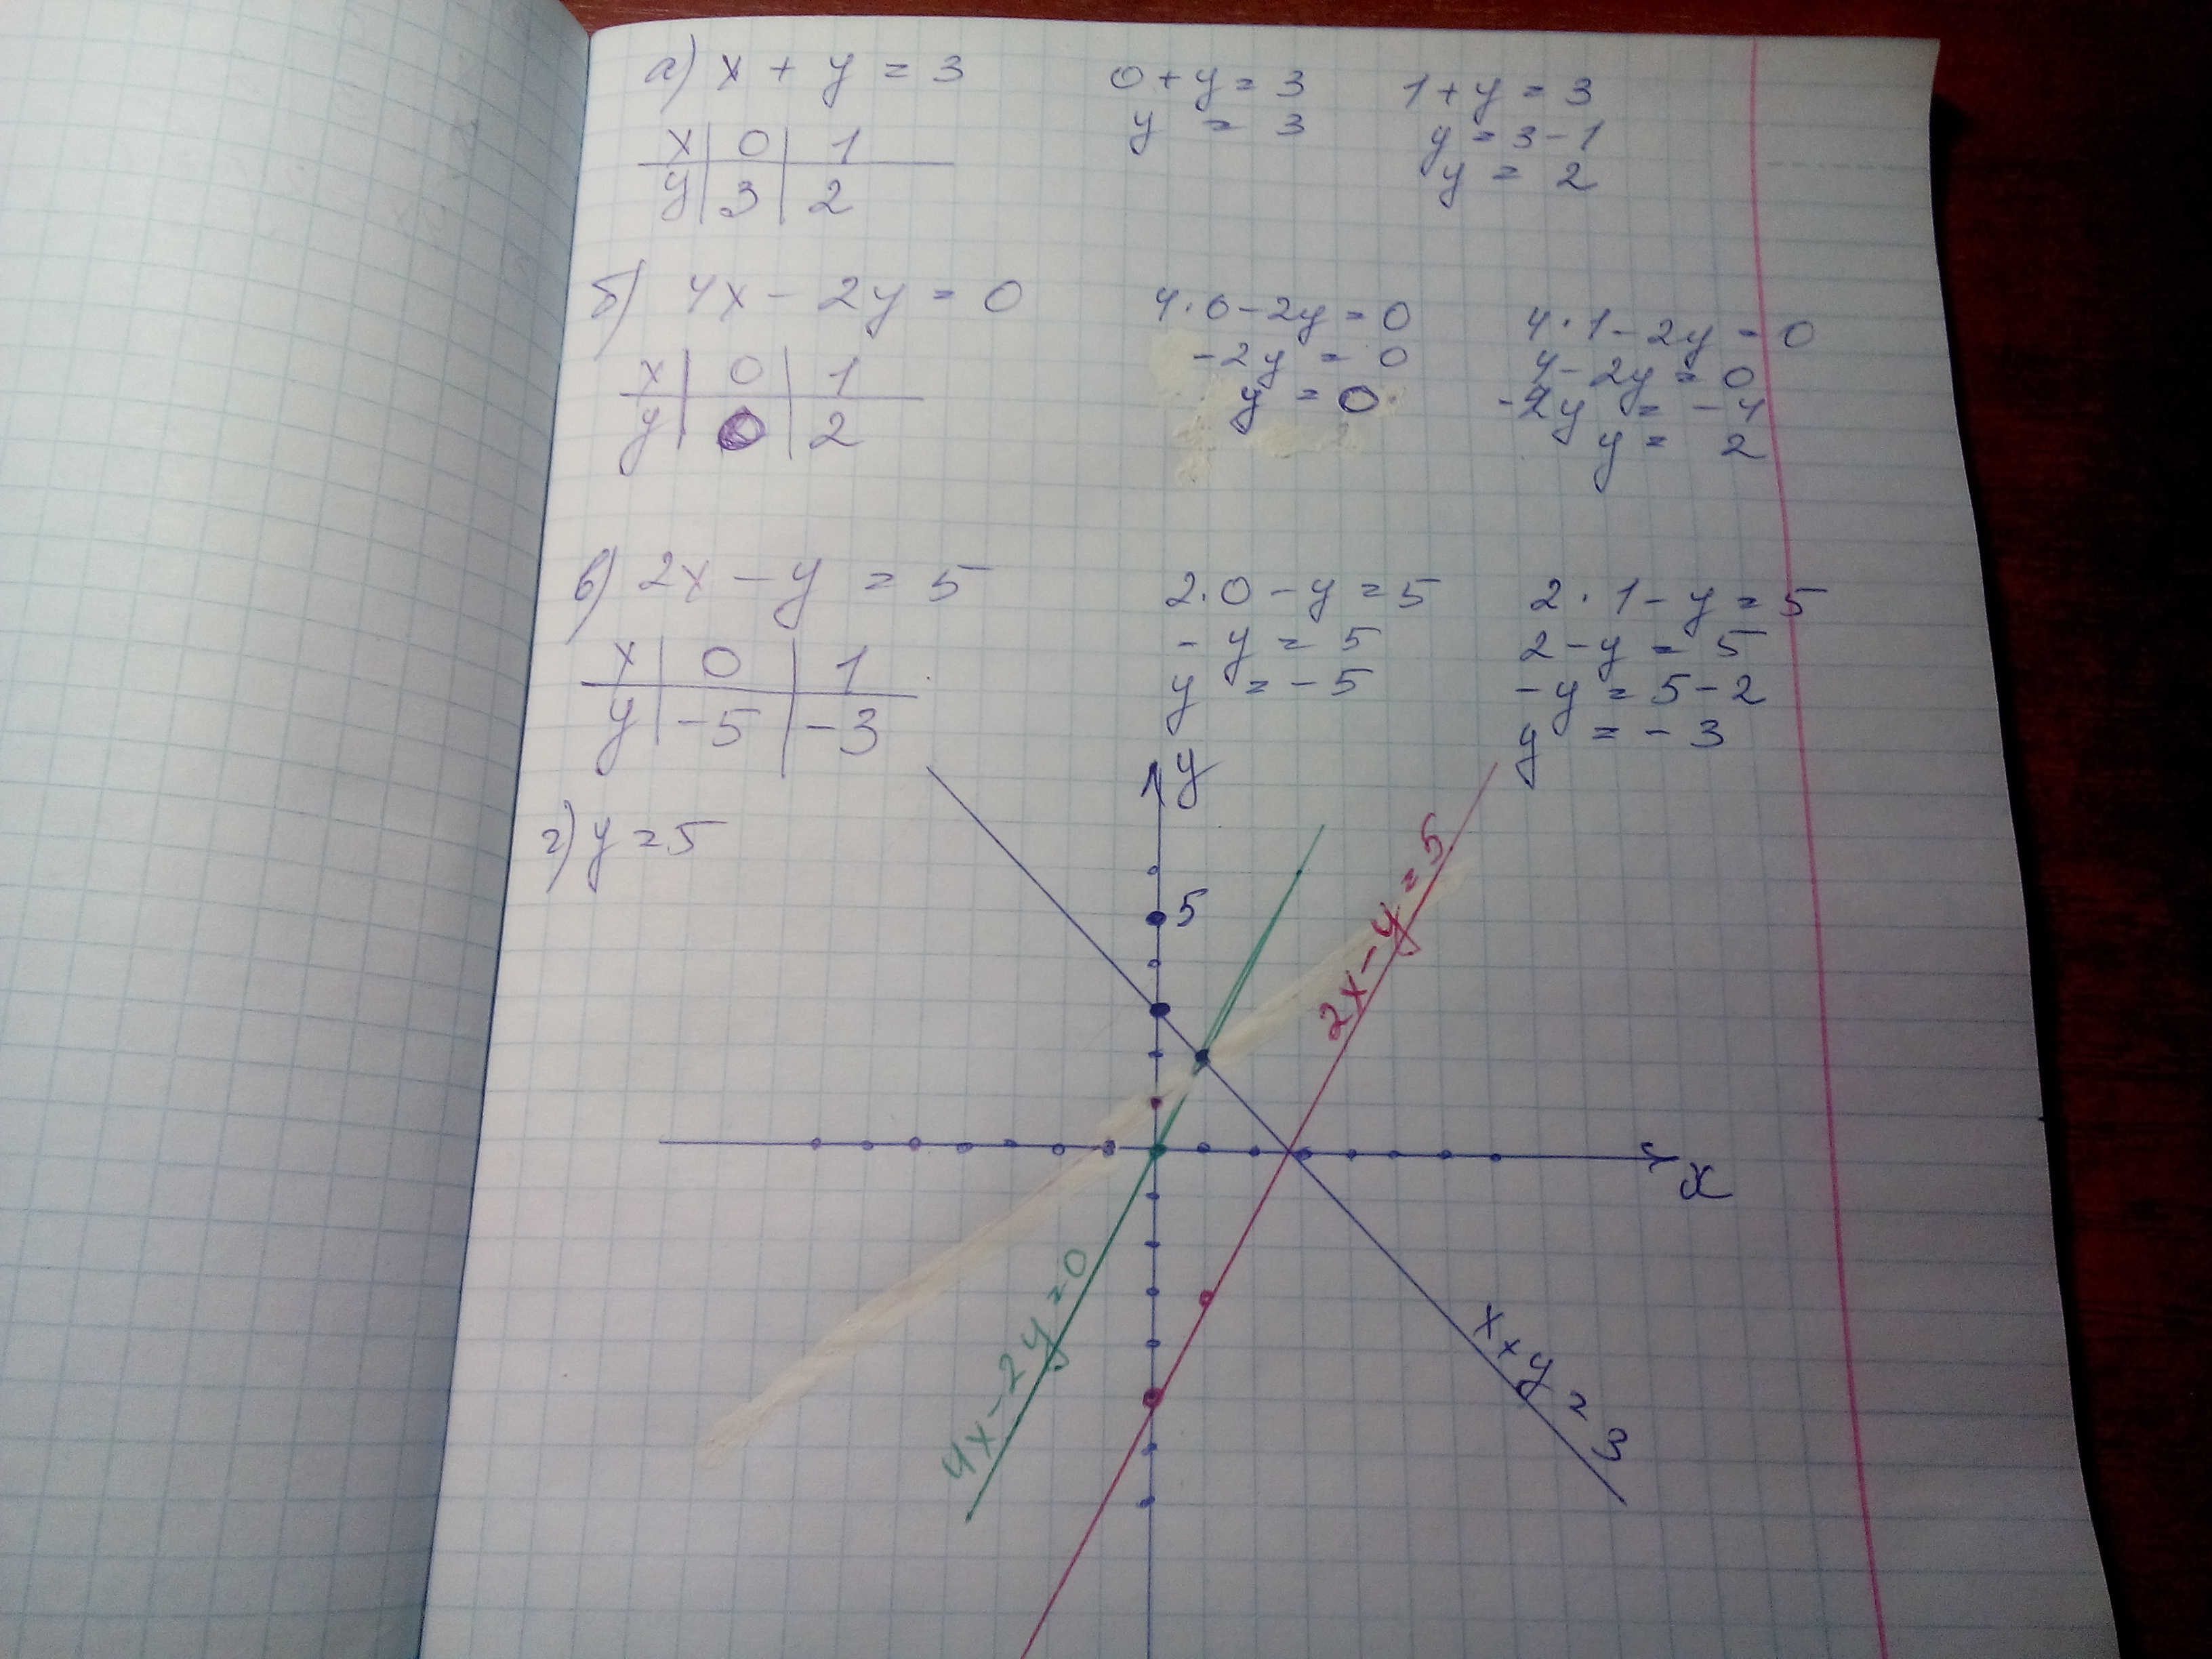 а) x + y = 3
x 0 1
y 3 2
0 + y = 3
y = 3
1 + y = 3
y = 3 - 1
y = 2
б) 4x - 2y = 0
x 0 1
y 0 2
4 · 0 - 2y = 0
-2y = 0
y = 0
4 · 1 - 2y = 0
4 - 2y = 0
-2y = -4
y = 2
в) 2x - y = 5
x 0 1
y -5 -3
2 · 0 - y = 5
-y = 5
y = -5
2 · 1 - y = 5
2 - y = 5
-y = 5 - 2
y = -3
г) y = 5
y
5
2x - y = 5
x
4x - 2y = 0
x + y = 3